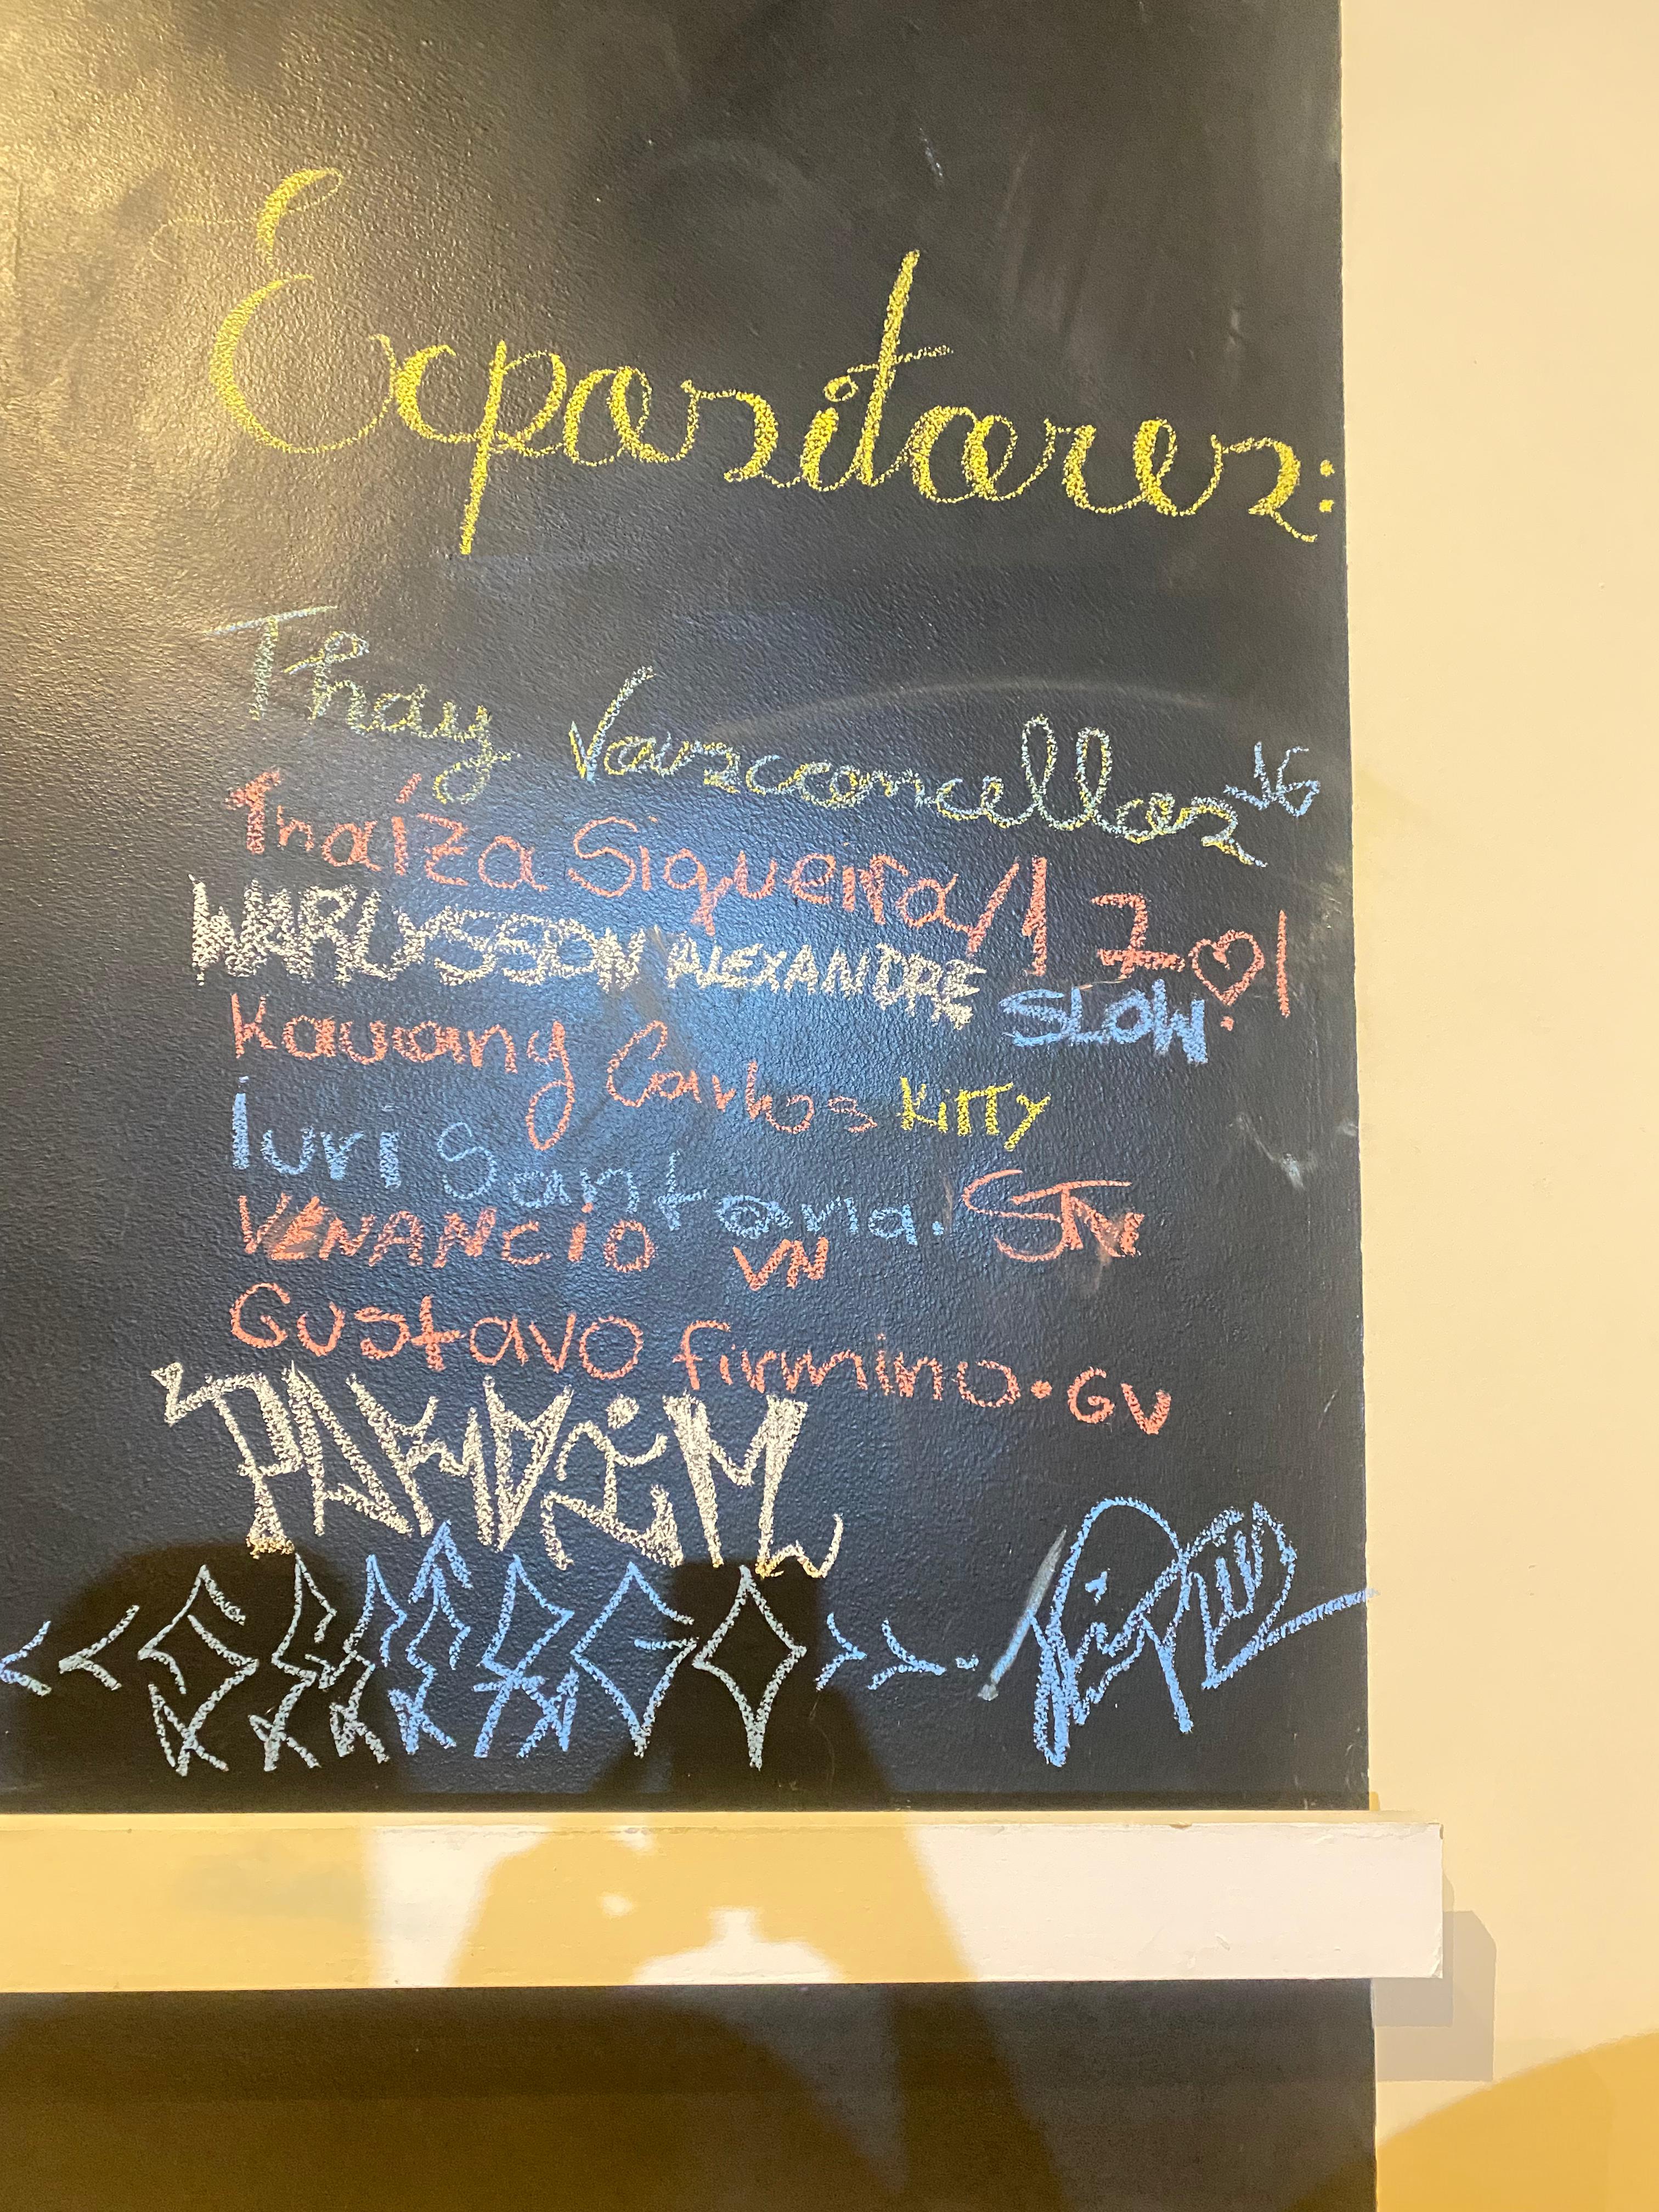 Expositores:
Thay Vasconcellos JG
Thaíza Siqueira/1 Z♡!
WARLYSSON ALEXANDRE SLOW
Kauany Carlos KITTY
iuri Santana. STN
VENANCiO VN
Gustavo firmino • GV